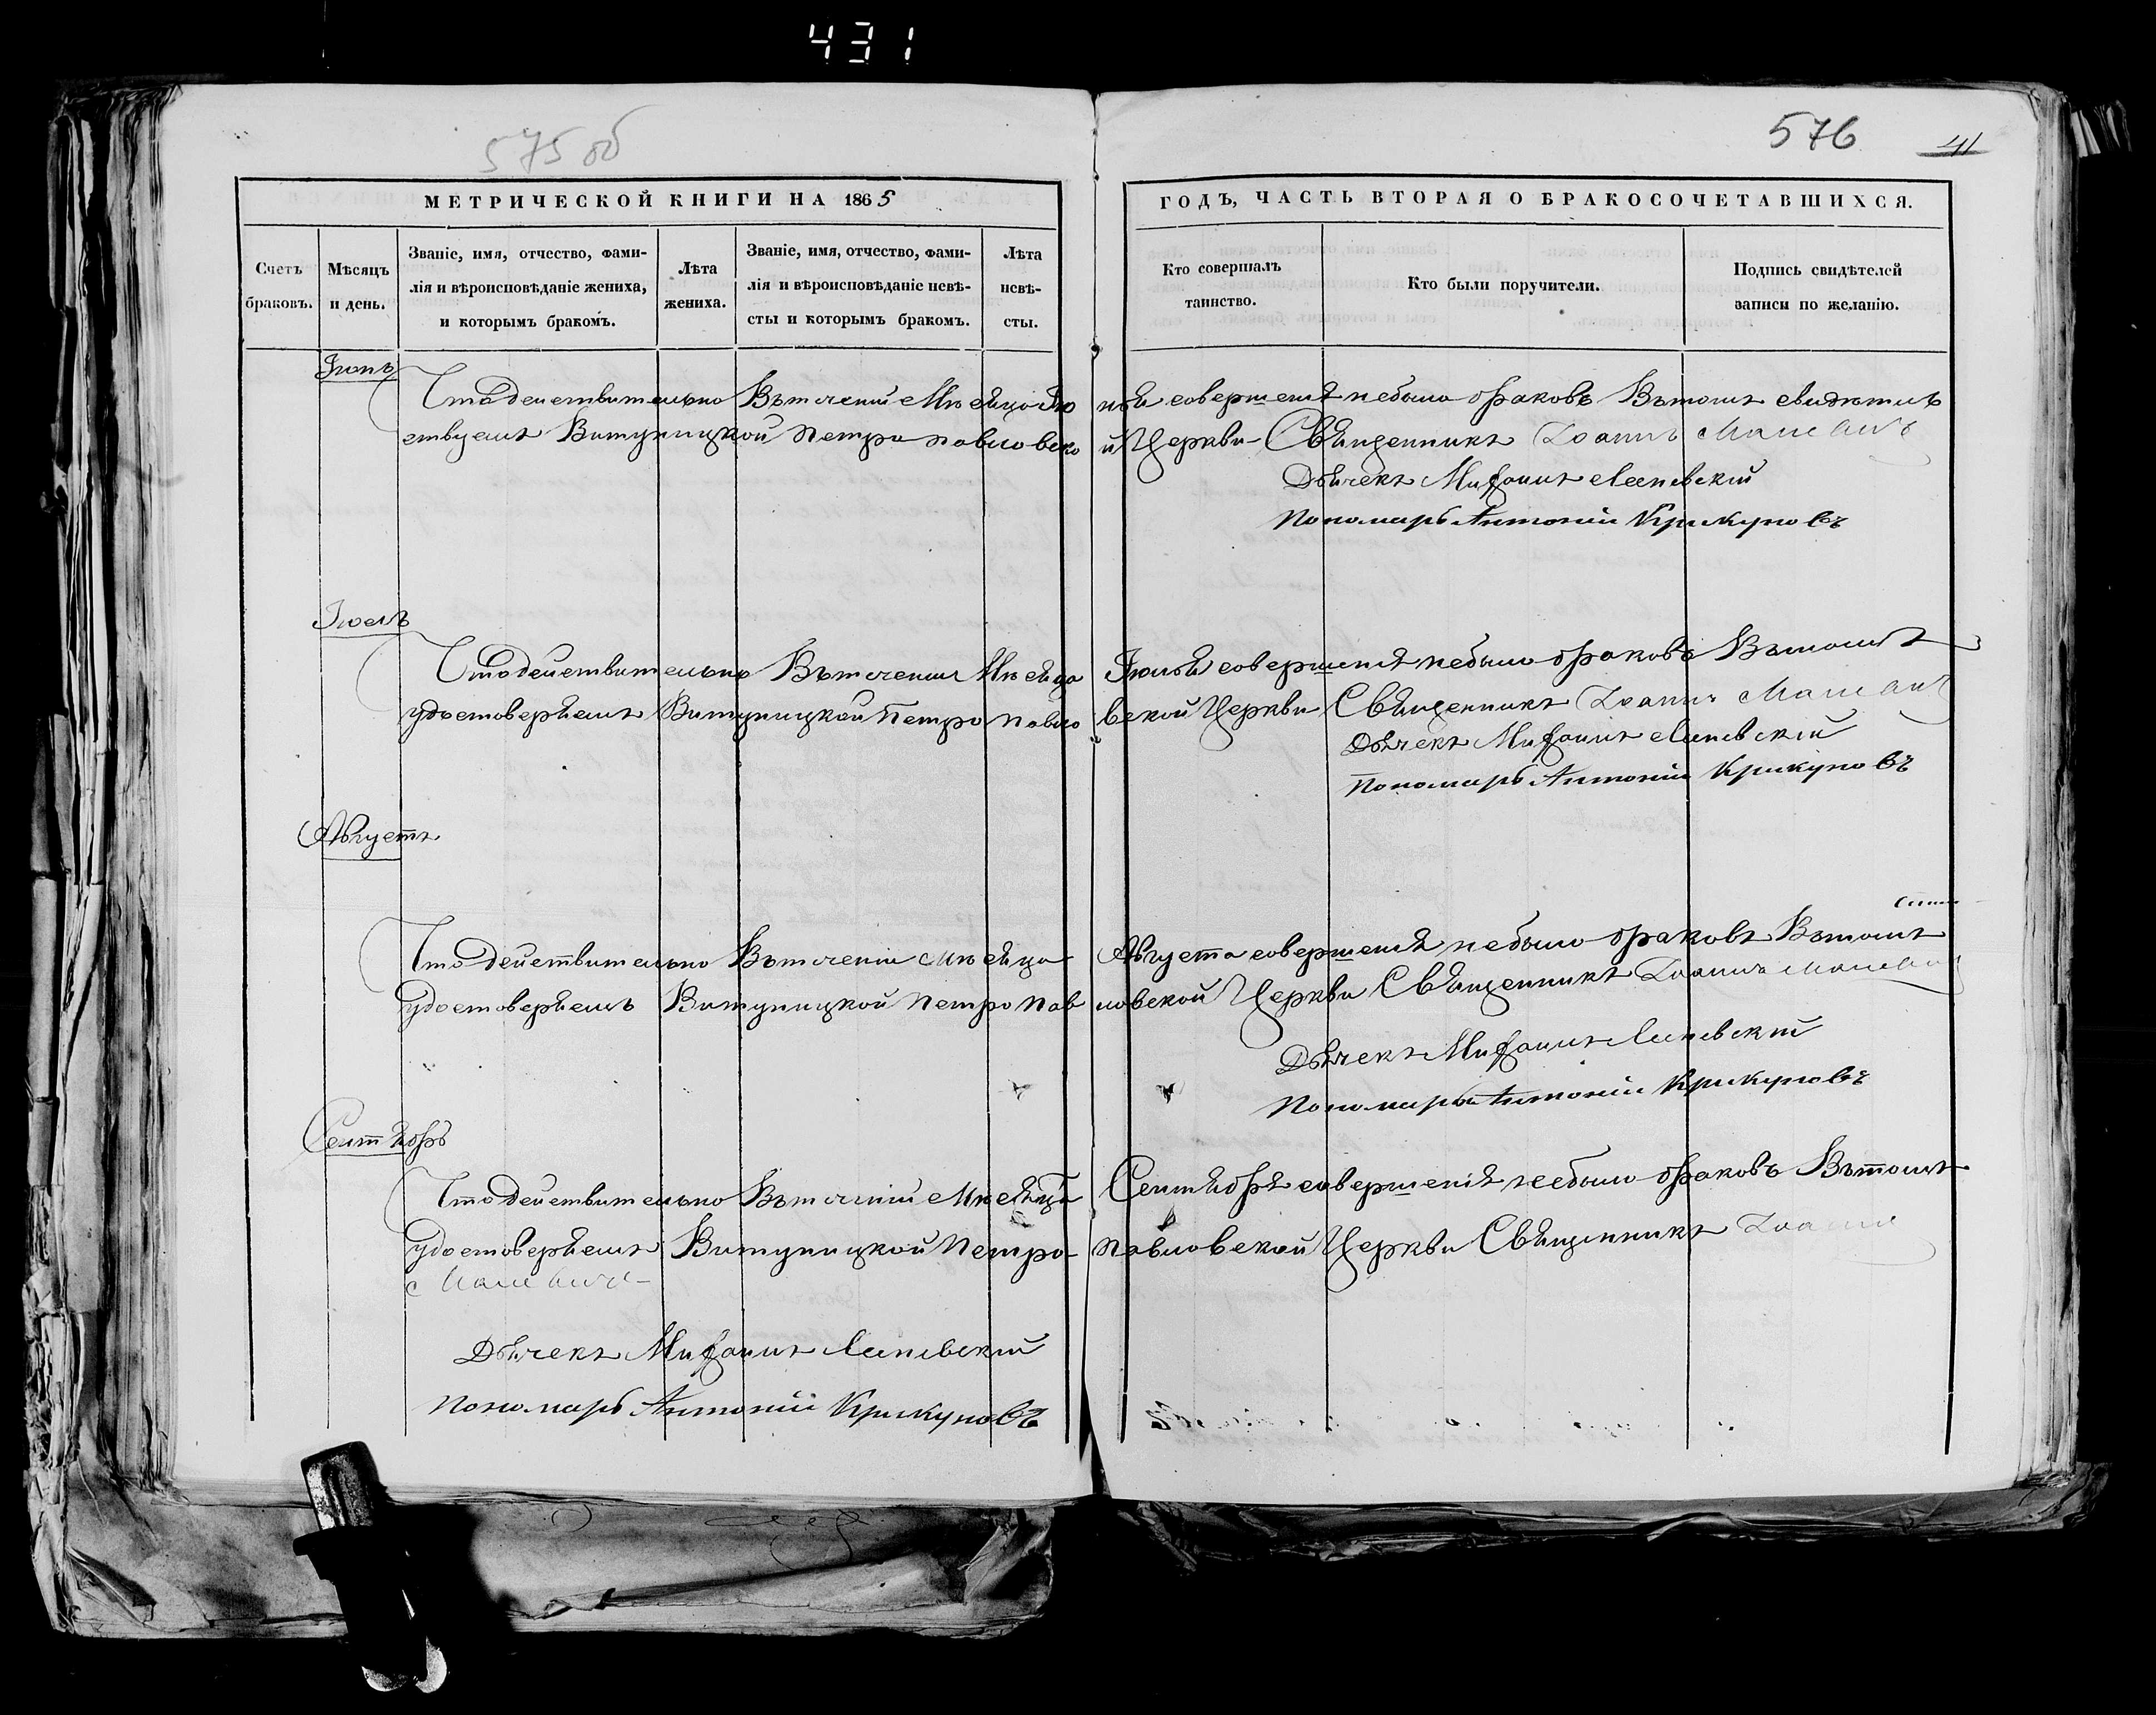 431
575 об
576
41
МЕТРИЧЕСКОЙ КНИГИ НА 1865
ГОДЪ, ЧАСТЬ ВТОРАЯ О БРАКОСОЧЕТАВШИХСЯ.
Счетъ браковъ.
Мѣсяцъ и день.
Званіе, имя, отчество, фами-
лія и вѣроисповѣданіе жениха,
и которымъ бракомъ.
Лѣта жениха.
Званіе, имя, отчество, фами-
лія и вѣроисповѣданіе невѣ-
сты и которымъ бракомъ.
Лѣта
невѣ-
сты.
Кто совершалъ
таинство.
Кто были поручители.
Подпись свидѣтелей
записи по желанію.
Іюнь
Что действительно Втеченіи Мѣсяца Ію нья совершенія небыло браковъ Втомъ свидѣтель
ствуемъ Витуницкой Петропавловско й Церкви Священникъ Іоаннъ
Дьячекъ Митрофанъ
Пономарь Антоній Крикуновъ
Іюль
Что действительно Втеченіи Мѣсяца Іюлья совершенія небыло браковъ Втомъ
удостоверяемъ Витуницкой Петропавло вской Церкви Священникъ Іоаннъ
Дьячекъ
Пономарь Антоній Крикуновъ
Августъ
Что действительно Втеченіи Мѣсяца Августа совершенія небыло браковъ Втомъ
удостоверяемъ Витуницкой Петропав ловской Церкви Священникъ Іоаннъ
Дьячекъ
Пономарь Антоній Крикуновъ
Сентябрь
Что действительно Втеченіи Мѣсяца Сентября совершенія небыло браковъ Втомъ
удостоверяемъ Витуницкой Петро- павловской Церкви Священникъ Іоаннъ
Дьячекъ
Пономарь Антоній Крикуновъ